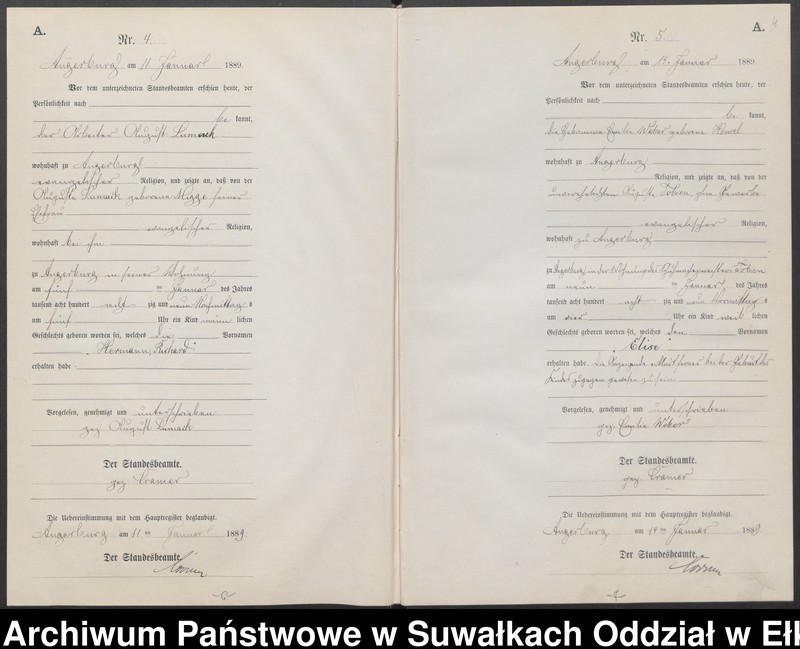 A.
Nr. 4.
Angerburg am 11 Januar 1889.
Vor dem unterzeichneten Standesbeamten erschien heute, der
Persönlichkeit nach
be kannt,
der Arbeiter August Lumack
wohnhaft zu Angerburg
evangelischer Religion, und zeigte an, daß von der
Auguste Lumack geborene Migge seiner
Ehefrau
evangelischer Religion,
wohnhaft bei ihm
zu Angerburg in seiner Wohnung
am fünf ten Januar des Jahres
tausend acht hundert acht zig und neun Nachmittag s
um fünf Uhr ein Kind männ lichen
Geschlechts geboren worden sei, welches die Vornamen
Hermann, Richard
erhalten habe
Vorgelesen, genehmigt und unterschrieben
gez. August Lumack
Der Standesbeamte.
gez. Cramer
Die Uebereinstimmung mit dem Hauptregister beglaubigt.
Angerburg am 11 ten Januar 1889.
Der Standesbeamte.
A.
4
Nr. 5.
Angerburg am 14. Januar 1889.
Vor dem unterzeichneten Standesbeamten erschien heute, der
Persönlichkeit nach
be kannt,
die Hebamme Emilie Weber geborene
wohnhaft zu Angerburg
Religion, und zeigte an, daß von der
unverehelichten Auguste Tobien, ohne Gewerbe
evangelischer Religion,
wohnhaft zu Angerburg
zu Angerburg in der Wohnung des Tobien
am neun ten Januar des Jahres
tausend acht hundert acht zig und neun Vormittag s
um vier Uhr ein Kind weib lichen
Geschlechts geboren worden sei, welches den Vornamen
Elise
erhalten habe. Die Anzeigende bei der Geburt des
Kindes zugegen gewesen zu sein
Vorgelesen, genehmigt und unterschrieben
gez. Emilie Weber
Der Standesbeamte.
gez. Cramer
Die Uebereinstimmung mit dem Hauptregister beglaubigt.
Angerburg am 14 ten Januar 1889.
Der Standesbeamte.
Archiwum Państwowe w Suwałkach Oddział w Ełk